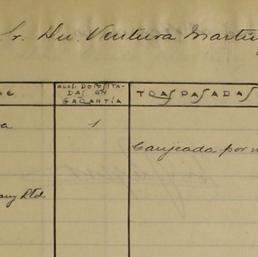 Sr. Dn. Ventura Martin
DEPOSITA-
DAS EN
GARANTÍA
TRASPASADAS
a 1
Canjeada por
Ltd